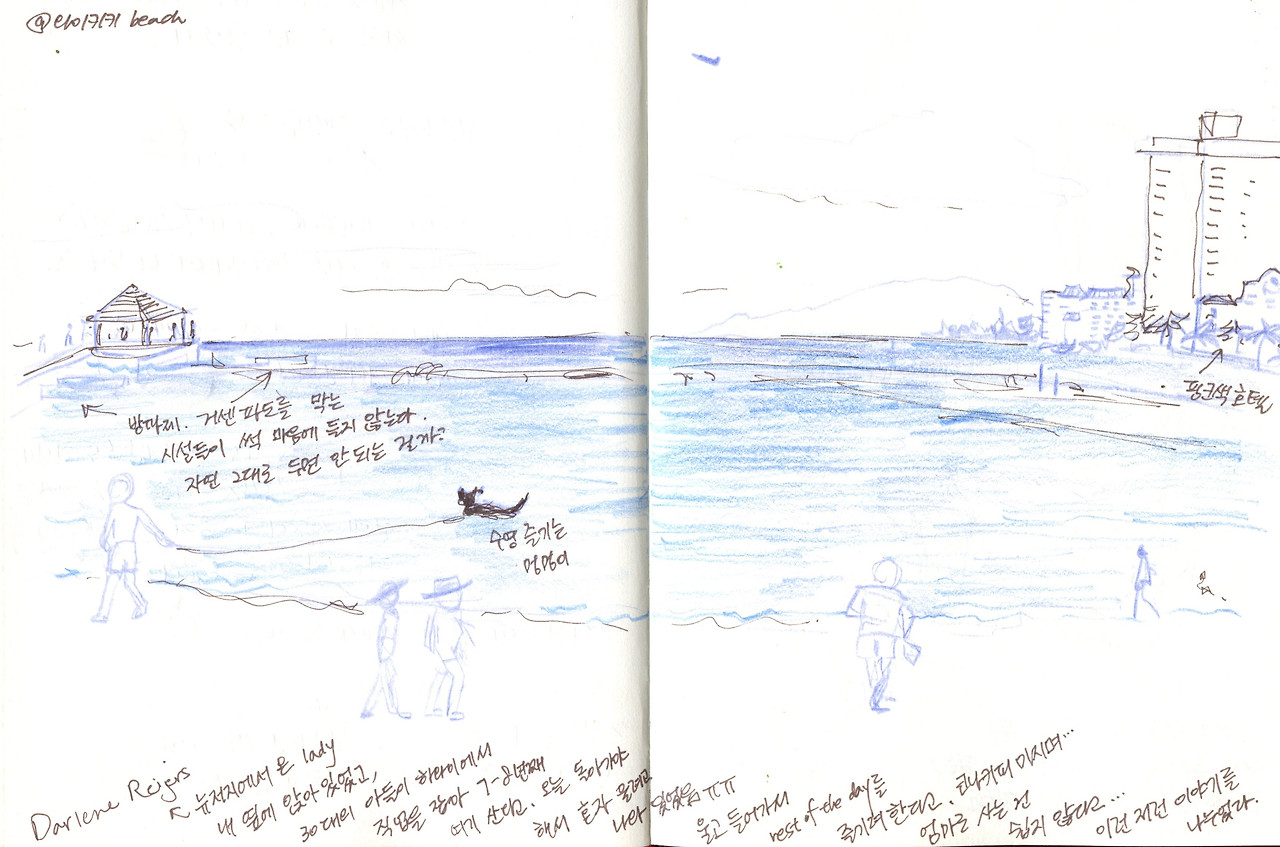 @와이키키 beach
방파제. 거센 파도를 막는
시설들이 썩 마음에 들지 않는다.
자연 그대로 두면 안 되는 걸까?
핑크색 호텔
수영 즐기는
멍멍이
Darlene Rojers
뉴저지에서 온 lady
내 옆에 앉아 있었고,
30대의 아들이 하와이에서
직업을 잡아 7-8번째
여기 산다고. 오늘 돌아가야
해서 혼자 울려고
나와 있었음 ㅠㅠ
울고 들어가서
rest of the day를
즐기려 한다고. 코나커피 마시며...
엄마로 사는 건
쉽지 않다고...
이런 저런 이야기를
나누었다.